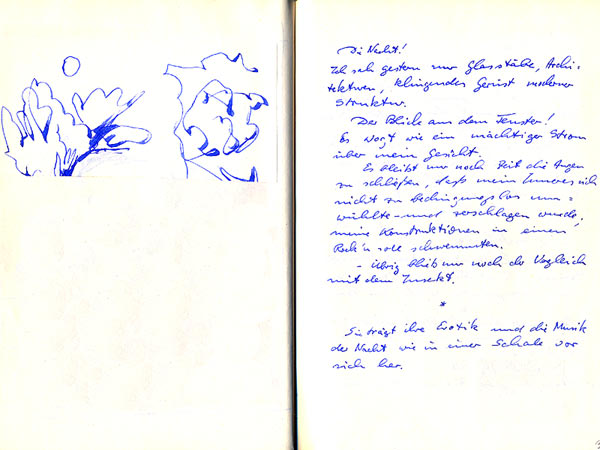 Die Nacht!
Ich sah gestern nur Glasstäbe, Archi-
tekturen, klingendes Gerüst moderner
Struktur.
Der Blick aus dem Fenster!
Es wogt wie ein mächtiger Strom
über mein Gesicht.
Es bleibt nur noch Zeit die Augen
zu schließen, daß mein Inneres sich
nicht zu bedingungslos um=
wühlte - und zerschlagen wurde,
meine Konstruktionen in einen
Rock'n roll schwemmten.
- übrig blieb nur noch der Vergleich
mit dem Insekt.
*
Sie trägt ihre Erotik und die Musik
der Nacht wie in einer Schale vor
sich her.